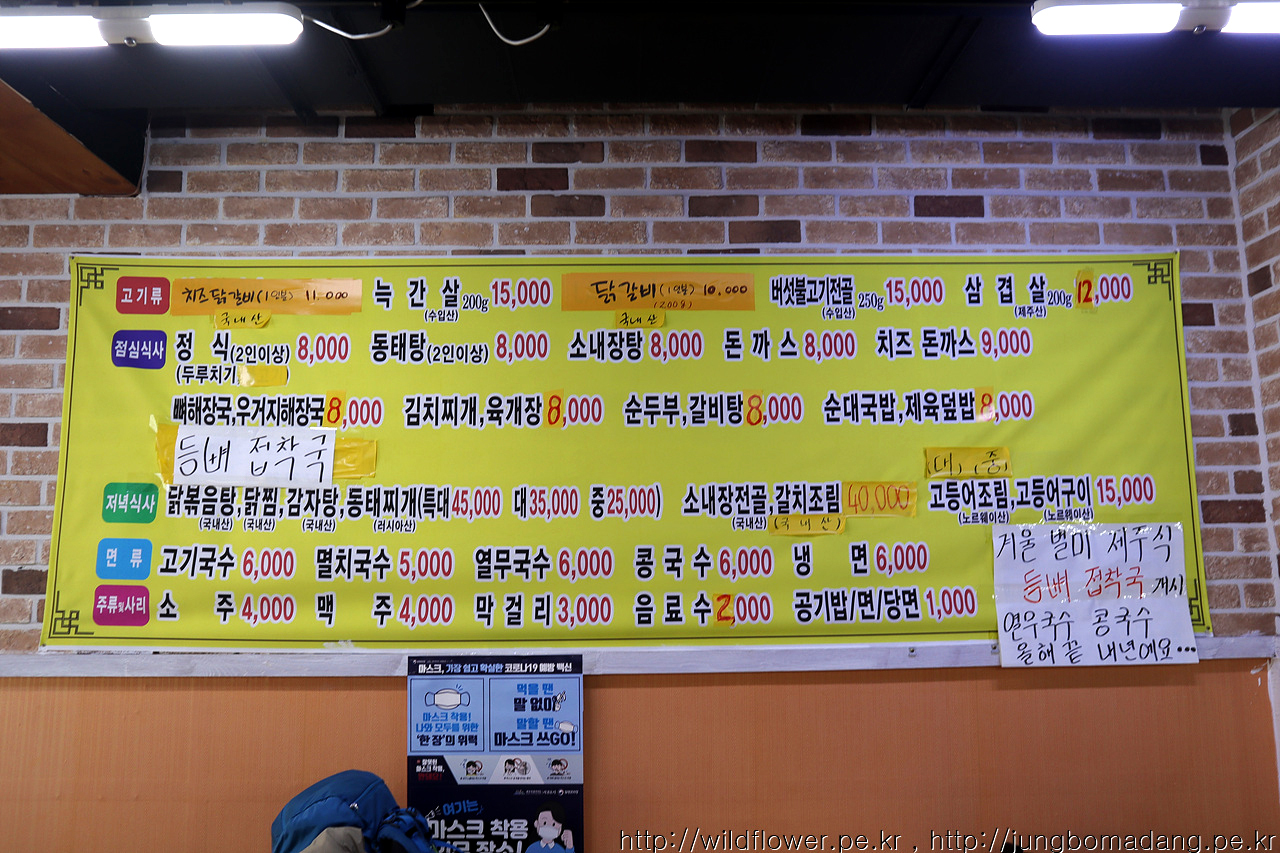 고기류 치즈닭갈비(1인분) 11.000 늑간살 200g 15,000 닭갈비(1인분) 10.000 버섯불고기전골 250g 15,000 삼겹살 200g 12,000
국내산 (수입산) (200g) 국내산 (수입산) (제주산)
점심식사 정식(2인이상) 8,000 동태탕(2인이상) 8,000 소내장탕 8,000 돈까스 8,000 치즈 돈까스 9,000
(두루치기
뼈해장국,우거지해장국 8,000 김치찌개,육개장 8,000 순두부,갈비탕 8,000 순대국밥,제육덮밥 8,000
등뼈 접착국
(대) (중)
저녁식사 닭볶음탕,닭찜,감자탕,동태찌개(특대45,000 대35,000 중25,000) 소내장전골,갈치조림 40,000 고등어조림,고등어구이 15,000
(국내산) (국내산) (국내산) (러시아산) (국내산) (국내산) (노르웨이산) (노르웨이산)
면류 고기국수 6,000 멸치국수 5,000 열무국수 6,000 콩국수 6,000 냉면 6,000
주류및사리 소주 4,000 맥주 4,000 막걸리 3,000 음료수 2,000 공기밥/면/당면 1,000
겨울 별미 제주식
등뼈 접착국 개시
연무국수 콩국수
올해 끝 내년에요...
마스크, 가장 쉽고 확실한 코로나19 예방 백신
마스크 착용!
나와 모두를 위한
'한 장'의 위력
먹을 땐
말 없이
말할 땐
마스크 쓰GO!
잘못된
마스크 착용,
여기는
마스크 착용
http://wildflower.pe.kr , http://jungbomadang.pe.kr